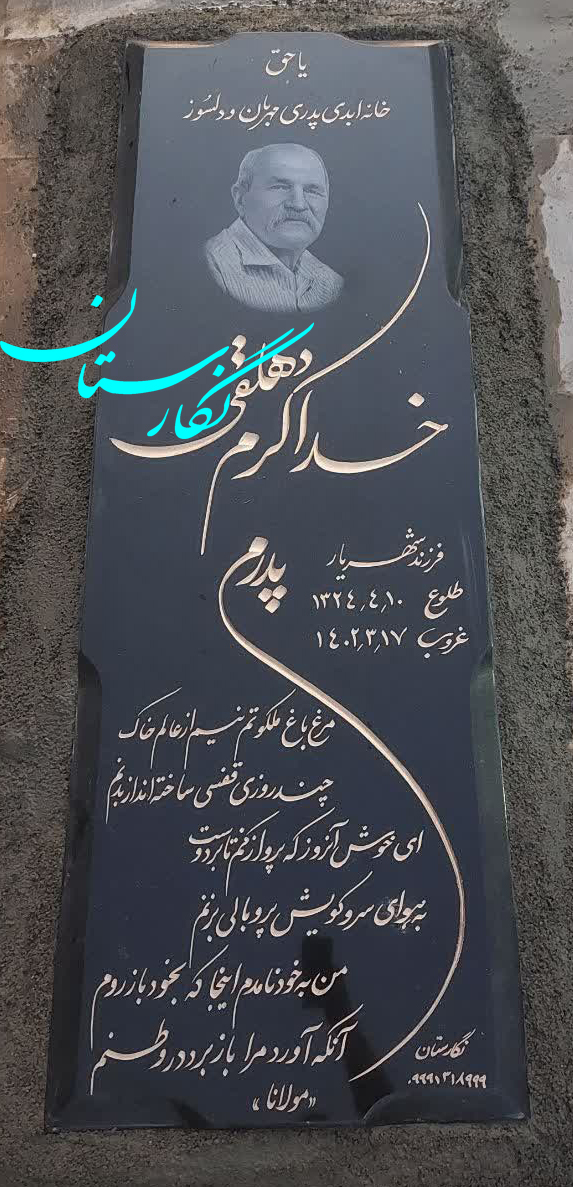 یا حق
خانه ابدی پدری مهربان و دلسوز
خداکرم دهلقی
نگارستان
پدرم
فرزند شهریار
طلوع ۱۳۲٤٫٤٫۱۰
غروب ۱٤۰۲٫۳٫۱۷
مرغ باغ ملکوتم نیم از عالم خاک
چند روزی قفسی ساخته اند از بدنم
ای خوش آنروز که پرواز کنم تا بر دوست
به هوای سر کویش پر و بالی بزنم
من به خود نامدم اینجا که بخود باز روم
آنکه آورد مرا باز برد در وطنم
«مولانا»
نگارستان
۰۹۹۹۱۳۱۸۹۹۹